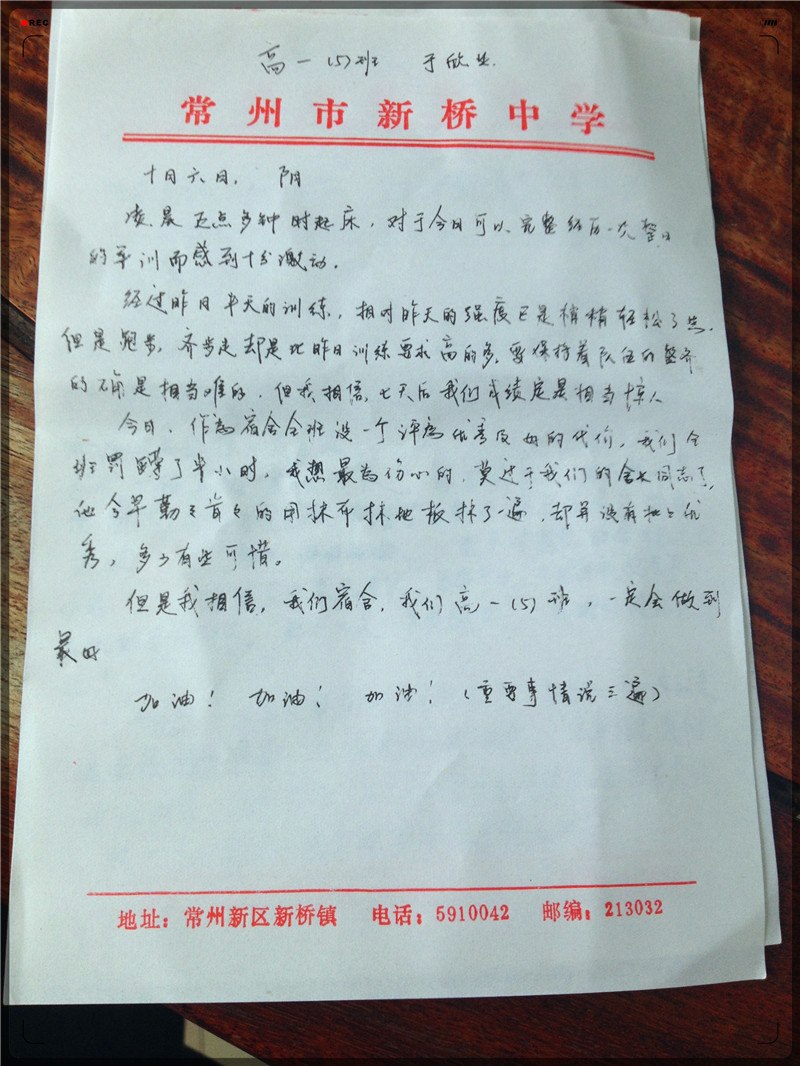 REC
高一(5)班 于欣
常州市新桥中学
十月六日, 阴
凌晨五点多钟时起床,对于今日可以完整经历一次整日
的军训而感到十分激动.
经过昨日半天的训练,相对昨天的强度已是稍稍轻松了点.
但是跑步,齐步走却是比昨日训练要求高的多,要保持着队伍的整齐
的确是相当难的,但我相信,七天后我们成绩定是相当惊人
今日,作为宿舍全班没一个评为优秀及的代价,我们全
班罚蹲了半小时,我想最为伤心的,莫过于我们的舍长同志了,
他今早勤勤肯肯的用抹布抹地板抹了一遍,却并没有评上优
秀,多少有些可惜。
但是我相信,我们宿舍,我们高一(5)班,一定会做到
最好
加油! 加油! 加油!(重要事情说三遍)
地址:常州新区新桥镇 电话:5910042 邮编:213032